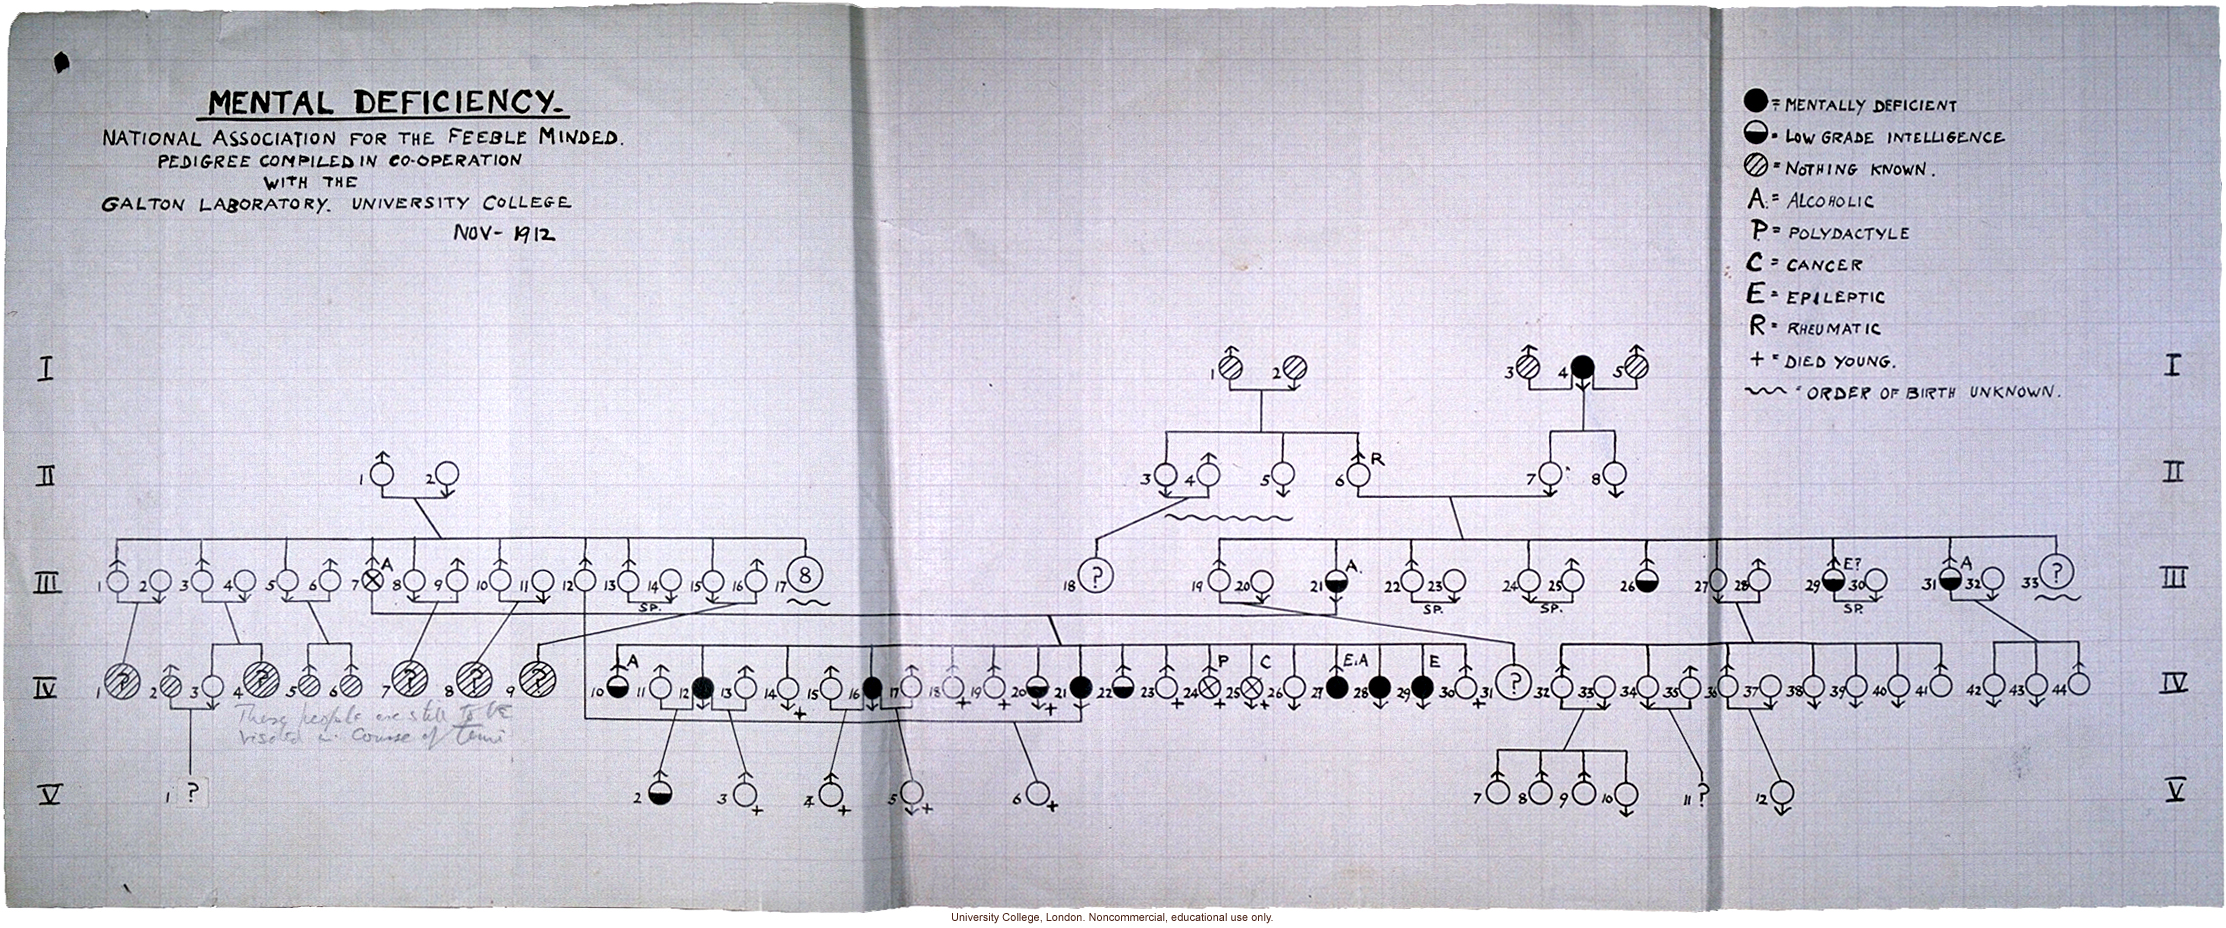 MENTAL DEFICIENCY.
NATIONAL ASSOCIATION FOR THE FEEBLE MINDED.
PEDIGREE COMPILED IN CO-OPERATION
WITH THE
GALTON LABORATORY. UNIVERSITY COLLEGE
NOV- 1912
= MENTALLY DEFICIENT
= LOW GRADE INTELLIGENCE
= NOTHING KNOWN.
A. = ALCOHOLIC
P = POLYDACTYLE
C = CANCER
E = EPILEPTIC
R = RHEUMATIC
+ = DIED YOUNG.
= ORDER OF BIRTH UNKNOWN.
I 1 2 3 4 5 I
II 1 2 3 4 5 6 R 7 8 II
III 1 2 3 4 5 6 7 A 8 9 10 11 12 13 14 15 16 17 8 18 ? 19 20 21 A. 22 23 24 25 26 27 28 29 E? 30 31 A 32 33 ? III
SP. SP. SP. SP.
IV 1 ? 2 3 4 ? 5 6 7 ? 8 ? 9 ? 10 A 11 12 13 14 + 15 16 17 18 + 19 + 20 + 21 22 23 + 24 P + 25 C + 26 27 E.A 28 29 E 30 + 31 ? 32 33 34 35 36 37 38 39 40 41 42 43 44 IV
These people are still to be
visited in course of time
V 1 ? 2 3 + 4 + 5 + 6 + 7 8 9 10 11 ? 12 V
University College, London. Noncommercial, educational use only.